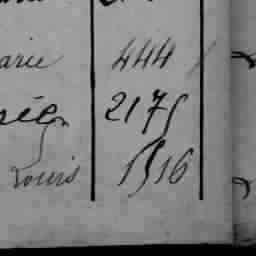 arie 444
2175
Louis 1516